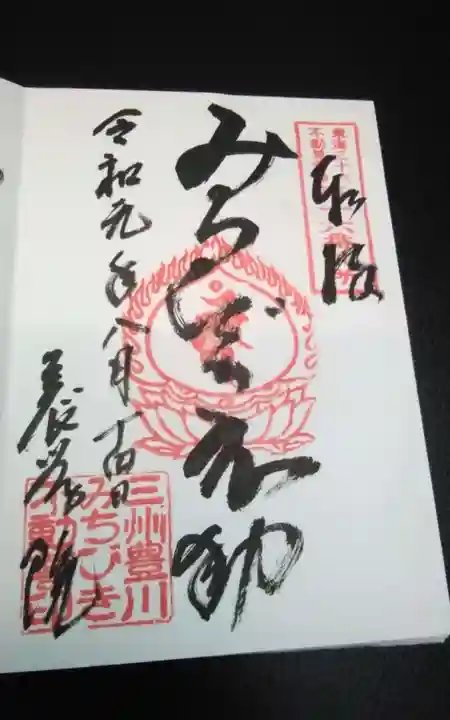 奉拝
東海三十
不動尊
みちびき不動
令和元年八月十四日
養学院
三州豊川
みちびき
不動